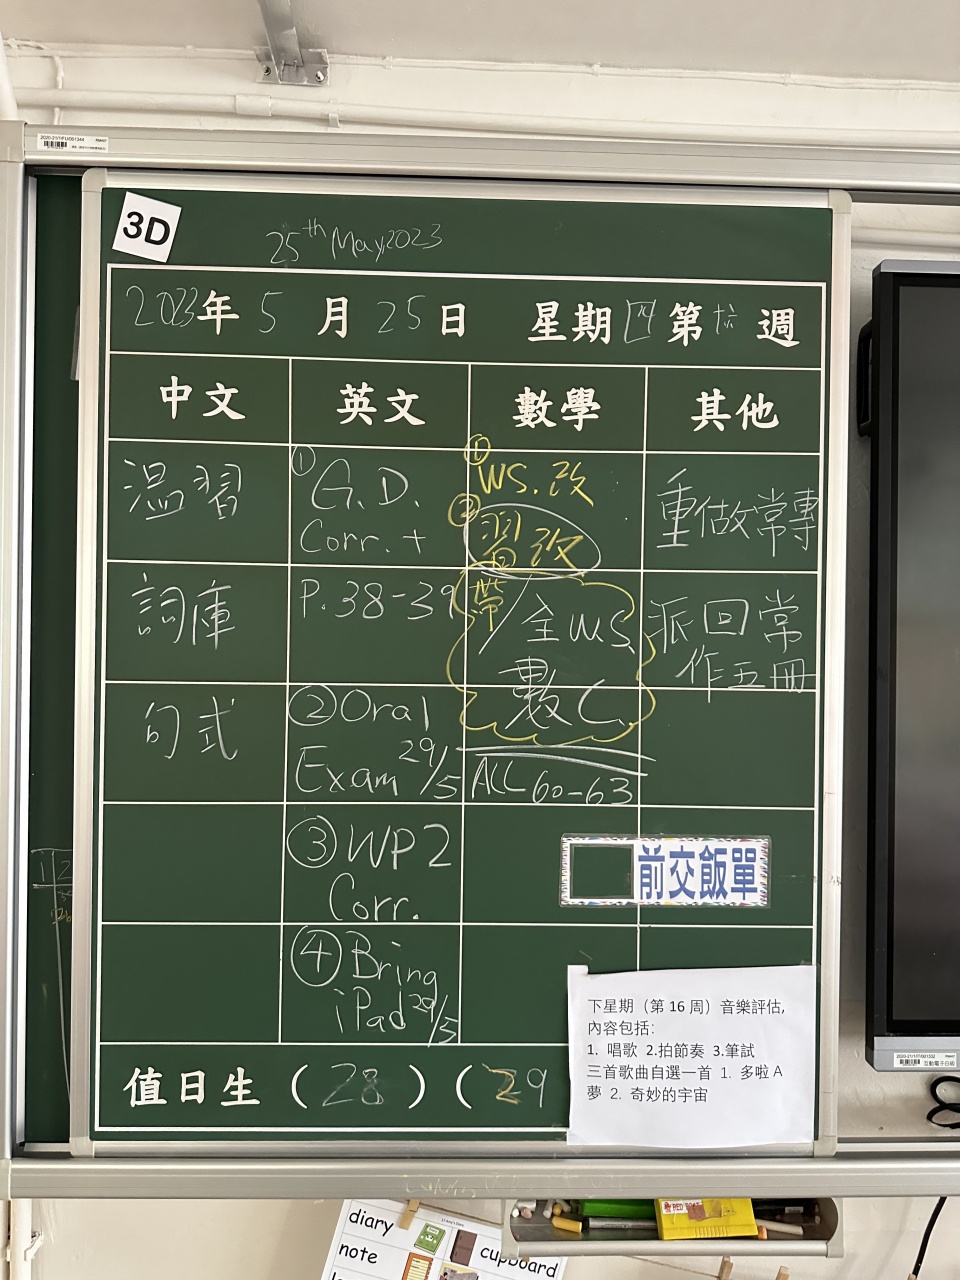 2020-21/1/FU/001344
3D
25th May,2023
2023年 5 月 25 日 星期四 第 週
中文 英文 數學 其他
温習
詞庫
句式
① G.D.
Corr. +
P.38-39
② Oral
Exam 29/5
③ WP2
Corr.
④ Bring
iPad 29/5
① WS.改
② 習改
帶 / 全WS
數C
ALL 60-63
重估改常專
派回常
作五冊
前交飯單
下星期（第 16 周）音樂評估,
內容包括:
1. 唱歌 2.拍節奏 3.筆試
三首歌曲自選一首 1. 多啦 A
夢 2. 奇妙的宇宙
值日生 ( 28 ) ( 29
互動電子白板
diary
note
cupboard